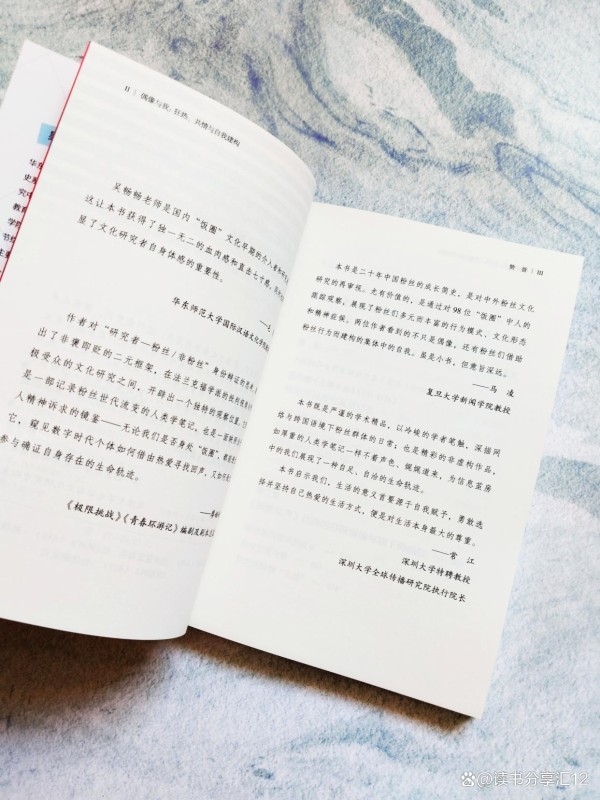 II | 偶像与我：狂热、共情与自我建构
吴畅畅老师是国内“饭圈”文化早期的介入者和研究
这让本书获得了独一无二的血肉感和直击七寸
显了文化研究者自身体感的重要性。
华东师范大学国际汉语文化学院
作者对“研究者—粉丝/非粉丝”身份辩证的
出了非褒即贬的二元框架，在法兰克福学派的批判
极受众的文化研究之间，开辟出一个独特的观察位
是一部记录粉丝世代流变的人类学笔记，也是一
人精神诉求的镜鉴——无论我们是否身处“饭圈”，
它，窥见数字时代个体如何借由热爱寻找回声，又如
参与确证自身存在的生命轨迹。
《极限挑战》《青春环游记》编剧
赞誉 | III
本书是二十年中国粉丝的成长简史，是对中外粉丝文化
研究的再审视。尤有价值的，是通过对98位“饭圈”中人的
跟踪观察，展现了粉丝们多元而丰富的行为模式、文化形态
和精神症候。两位作者看到的不只是偶像，还有粉丝们借助
粉丝行为而建构的集体中的自我。虽是小书，但意旨深远。
——马 凌
复旦大学新闻学院教授
本书既是严谨的学术精品，以冷峻的学者笔触，深描网
络与跨国语境下粉丝群体的日常；也是精彩的非虚构作品，
如厚重的人类学笔记一样不着声色、娓娓道来，为信息茧房
中的我们展现了一种自足、自洽的生命轨迹。
本书启示我们，生活的意义首要源于自我赋予，勇敢选
择并坚持自己热爱的生活方式，便是对生活本身最大的尊重。
——常 江
深圳大学特聘教授
深圳大学全球传播研究院执行院长
华东
史系
究中
教育
学院
节组
主要
读书分享汇12